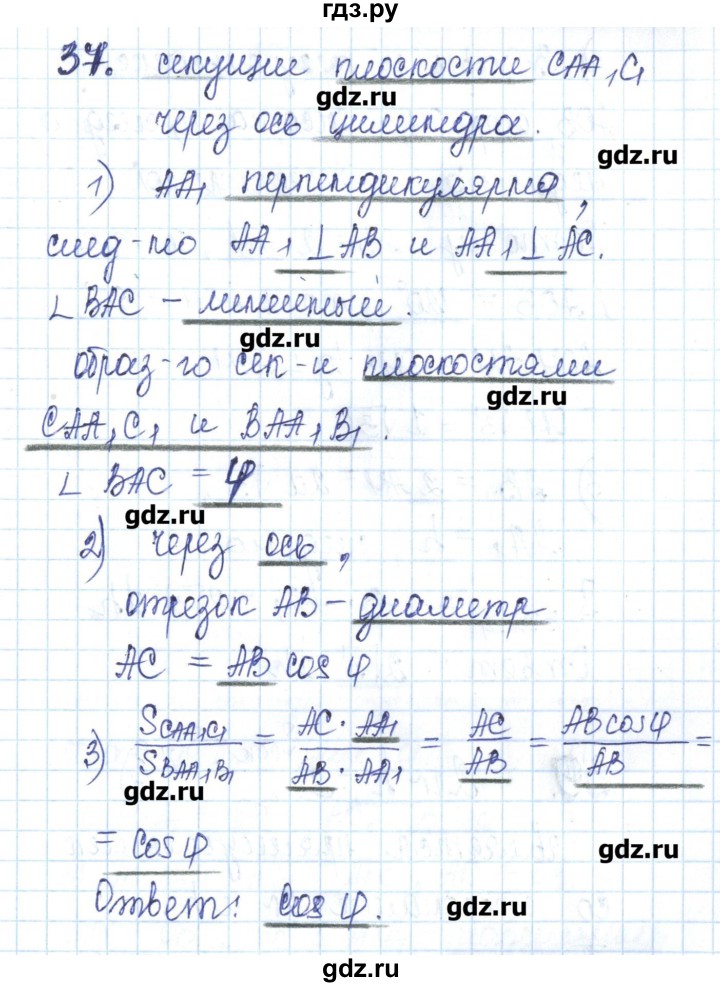 гдз.ру
37. секущие плоскости CAA₁C₁
gdz.ru
через ось цилиндра.
gdz.ru
1) AA₁ перпендикулярна,
след-но AA₁ ⊥ AB и AA₁ ⊥ AC.
∠ BAC – линейный.
gdz.ru
образ-го сек-и плоскостями
gdz.ru
CAA₁C₁ и BAA₁B₁.
∠ BAC = φ
gdz.ru
2) через ось,
отрезок AB – диаметр
AC = AB cos φ
3) S_CAA₁C₁ / S_BAA₁B₁ = AC · AA₁ / AB · AA₁ = AC / AB = AB cos φ / AB =
gdz.ru
= cos φ
gdz.ru
Ответ: cos φ.
gdz.ru
gdz.ru